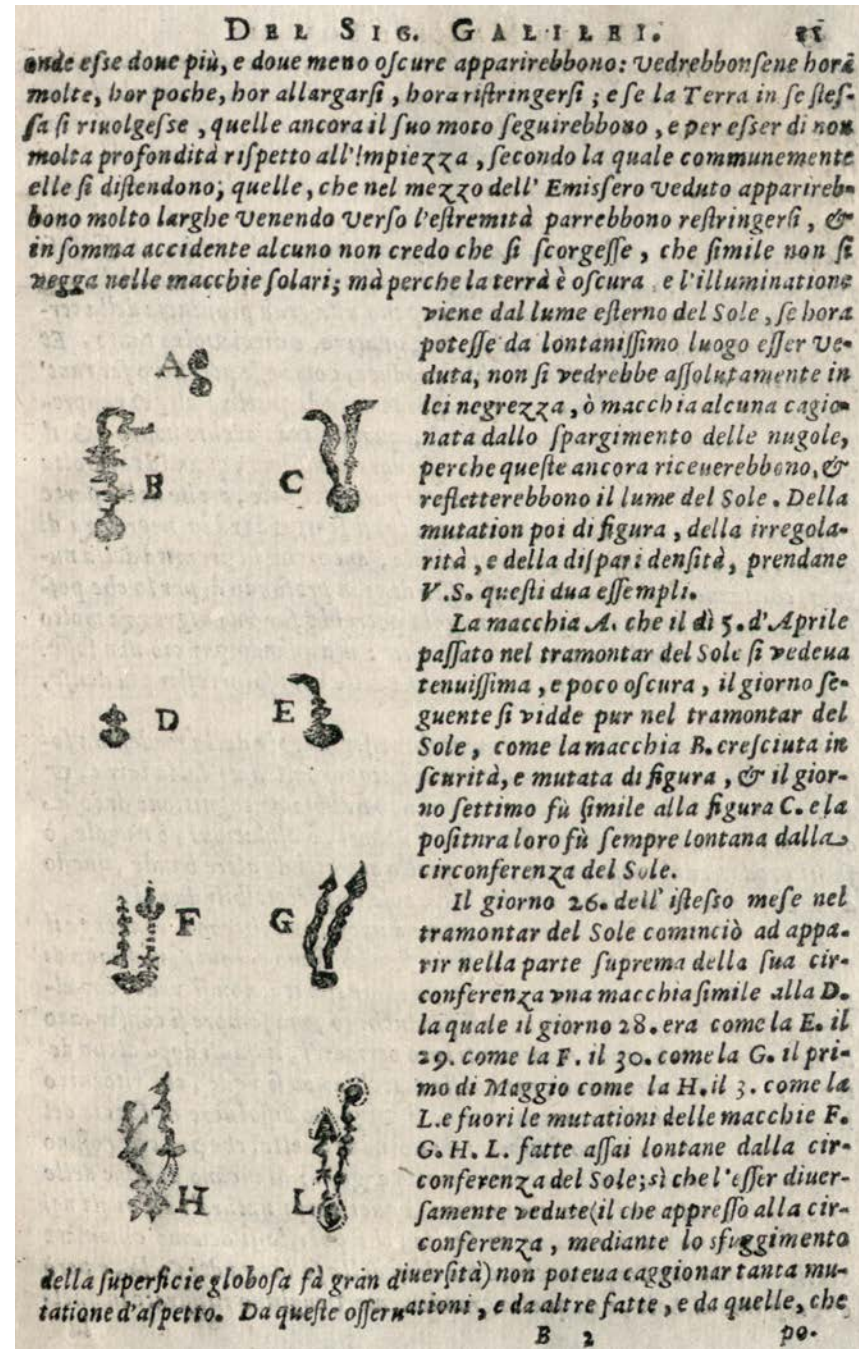 DEL SIG. GALILEI. 11
onde eſse doue più, e doue meno oſcure apparirebbono: vedrebbonſene horà
molte, hor poche, hor allargarſi, hora riſtringerſi; e ſe la Terra in ſe ſteſ-
ſa ſi riuolgeſse, quelle ancora il ſuo moto ſeguirebbono, e per eſser di non
molta profondità riſpetto all'Ampiezza, ſecondo la quale communemente
elle ſi diſtendono; quelle, che nel mezzo dell' Emisfero veduto apparireb-
bono molto larghe venendo verſo l'eſtremità parrebbono reſtringerſi, &
in ſomma accidente alcuno non credo che ſi ſcorgeſſe, che ſimile non ſi
vegga nelle macchie ſolari; mà perche la terrà è oſcura e l'illuminatione
viene dal lume eſterno del Sole, ſe hora
poteſſe da lontaniſſimo luogo eſſer ve-
duta, non ſi vedrebbe aſſolutamente in
lei negrezza, ò macchia alcuna cagio-
nata dallo ſpargimento delle nugole,
perche queſte ancora riceuerebbono, &
refletterebbono il lume del Sole. Della
mutation poi di figura, della irregola-
rità, e della diſpari denſità, prendane
V.S. queſti dua eſſempli.
La macchia A. che il dì 5. d'Aprile
paſſato nel tramontar del Sole ſi vedeua
tenuiſſima, e poco oſcura, il giorno ſe-
guente ſi vidde pur nel tramontar del
Sole, come la macchia B. creſciuta in
ſcurità, e mutata di figura, & il gior-
no ſettimo fù ſimile alla figura C. e la
poſitnra loro fù ſempre lontana dalla
circonferenza del Sole.
Il giorno 26. dell' iſteſso meſe nel
tramontar del Sole cominciò ad appa-
rir nella parte ſuprema della ſua cir-
conferenza vna macchia ſimile alla D.
la quale il giorno 28. era come la E. il
29. come la F. il 30. come la G. il pri-
mo di Maggio come la H. il 3. come la
L. e fuori le mutationi delle macchie F.
G. H. L. fatte aſſai lontane dalla cir-
conferenza del Sole; sì che l'eſſer diuer-
ſamente vedute (il che appreſſo alla cir-
conferenza, mediante lo sfuggimento
della ſuperficie globoſa fà gran diuerſità) non poteua caggionar tanta mu-
tatione d'aſpetto. Da queſte oſſeruationi, e da altre fatte, e da quelle, che
B 2 po-
A
B C
D E
F G
H L